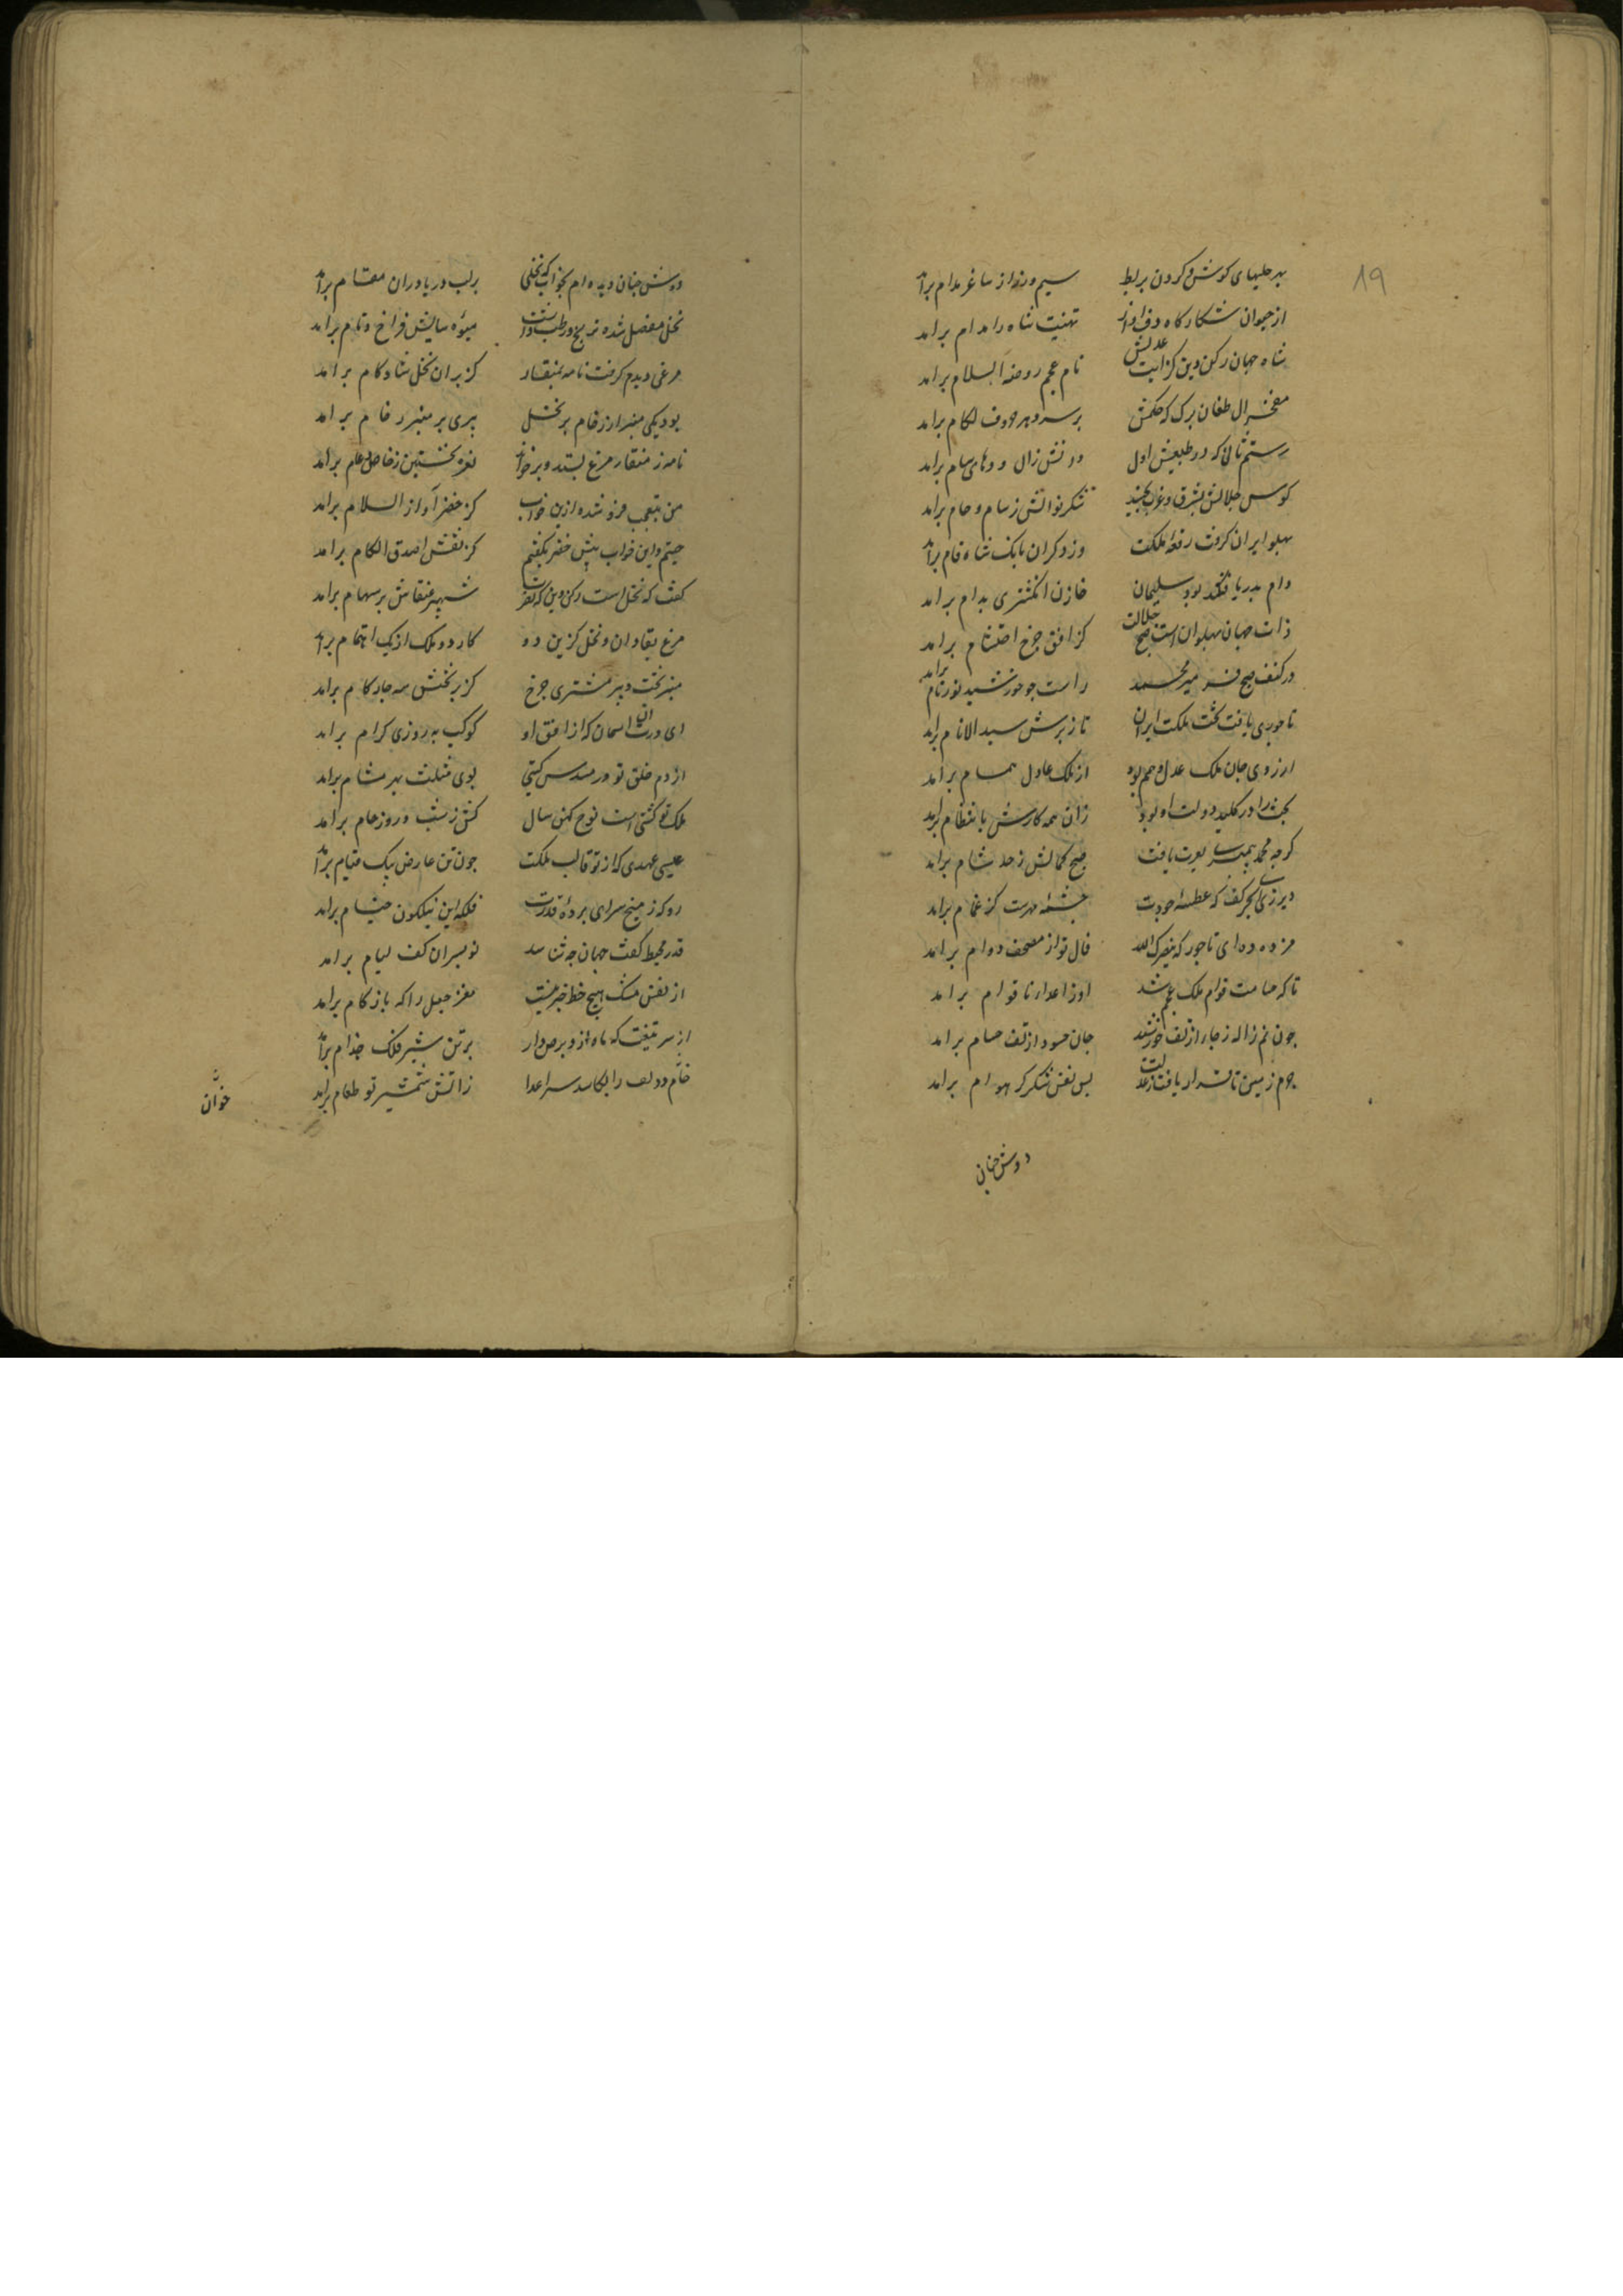 19
بهر حلیهای کوش و کردن بربط سیم و زر از ساغر مدام برآمد
از حیوان شکارکاه دف آواز تهنیت شاه را مدام برامد
شاه جهان رکن دین کز آیت عدلش نام عجم روضة السلام برامد
مفخر ال طغان یرک که حکمش بر سر و بر لکام برامد
رستم ثانی که در طبیعتش اول دانش زال و دهای سام برامد
کوس جلالش بشرق و غرب بجنبید شکر نوالش ز سام و حام برامد
پهلو ایران کرفت رقعه ملکت وز دکران بانک شاه قام برآمد
دام بدریا فکند بود سلیمان خازن انکشتری بدام برامد
ذات جهان پهلوان است صبح جلالت کز افق چرخ احتشام برامد
در کنف صبح میر محمد راست چو خورشید نور تام برامد
تاجوری یافت تخت ملکت ایران تا ز برش سید الانام برامد
ارزوی جان ملک عدل و همم بود از ملک عادل همام برامد
بخت را در کلید دولت او بود زان همه کارش بانتظام برامد
کرچه محمد پیمبری یافت صبح کمالش ز حد شام برامد
دیر زی ای بحر کف که عطسه جودت چشمه مهرست کز غمام برامد
مزده ده ای تاجور که ینصرک الله فال تو از مصحف دوام برامد
تا که حسامت قوام ملک عجم شد اوز اعدار نا قوام برامد
چون نم ژاله ز جار از تف خورشید جان حسود از تف حسام برامد
جرم زمین تا قرار یافت ز عدلت بس نفس شکر کز هوام برامد
دوش چنان
دوش چنان دیده ام بخواب که نخلی بر لب دریا دران مقام برآمد
نخل مفصل شده ترنج و رطب داشت میوه سایش فراخ و تام برامد
مرغی دیدم کرفت نامه بمنقار کز بر ان نخل شادکام برامد
بود یکی منبر از رخام بر نخل پیری بر منبر رخام برامد
نامه ز منقار مرغ بستد و برخواند نعره تحسین ز خاص و عام برامد
من بتعجب فرو شده ازین خواب کز خضر آواز السلام برامد
جستم و این خواب پیش خضر بکفتم کز نفسش اصدق الکلام برامد
کفت که نخل است رکن دین که نصرت شهپر عنقاش بر سهام برامد
مرغ بقا دان و نخل کزین دو کار دو ملک از یک اهتمام برآمد
منبر تخت و پیر مشتری چرخ کز بر تختش سه چار کام برامد
ای درت ان اسمان که از افق او کوکب بهروزی کرام برامد
از دم خلق تو در مسدس کیتی بوی مثلث بهر مشام برامد
ملک تو کشتی است نوح کهن سال کش ز شب و روز حام برامد
عیسی عهدی که از تو قالب ملکت چون تن عازر بیک قیام برآمد
رو که ز میخ سرای پرده قدرت فلکه این نیلکون خیام برامد
قدر محیط کفت جهان چه شناسد کو بسران کف لیام برامد
از نفس مشک هیچ خط خبر نیست مغز جعل را که با زکام برامد
از سر تیغت که ماه ازو برص دار بر تن شیر فلک جذام برآمد
خاتم دولت را بکاسه سر اعدا ز اتش شمشیر تو طعام برامد
خوان